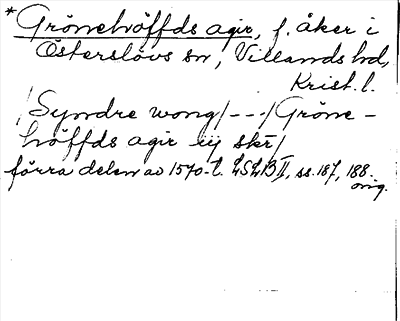 *Grönehöffds agir, f. åker i
Österslövs sn, Villands hd,
Krist. l.
/Syndre wong/---/Gröne-
höffds agir iij skr/
förra delen av 1570-t. LSLB II, ss. 187, 188.
orig.